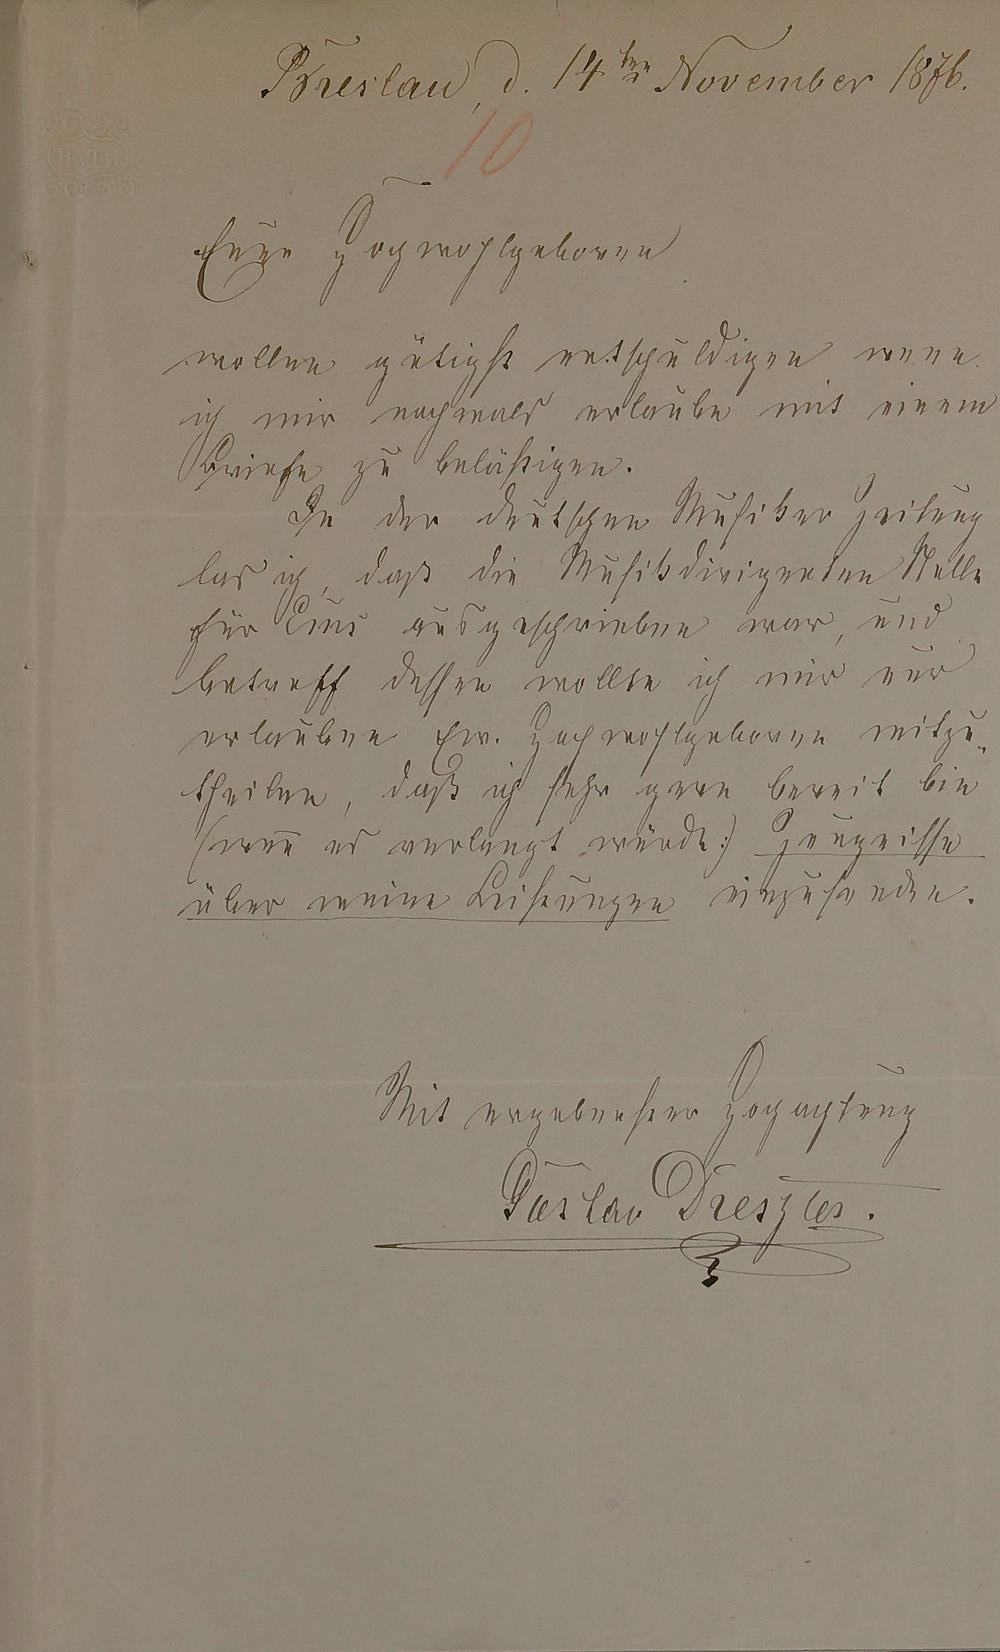 Breslau, d. 14ten November 1876.
10
BATH
Eure Hochwohlgeboren
wollen gütigst entschuldigen wenn
ich mir nochmals erlaube mit einem
Briefe zu belästigen.
In der deutschen Musiker Zeitung
las ich, daß die Musikdirigenten Stelle
für Cius ausgeschrieben war, und
betreff dessen wollte ich mir nur
erlauben Ew. Hochwohlgeboren mitzu-
theilen, daß ich sehr gern bereit bin
(wenn es verlangt würde:) Zeugnisse
über meine Leistungen einzusenden.
Mit ergebenster Hochachtung
Gustav Dreszler.